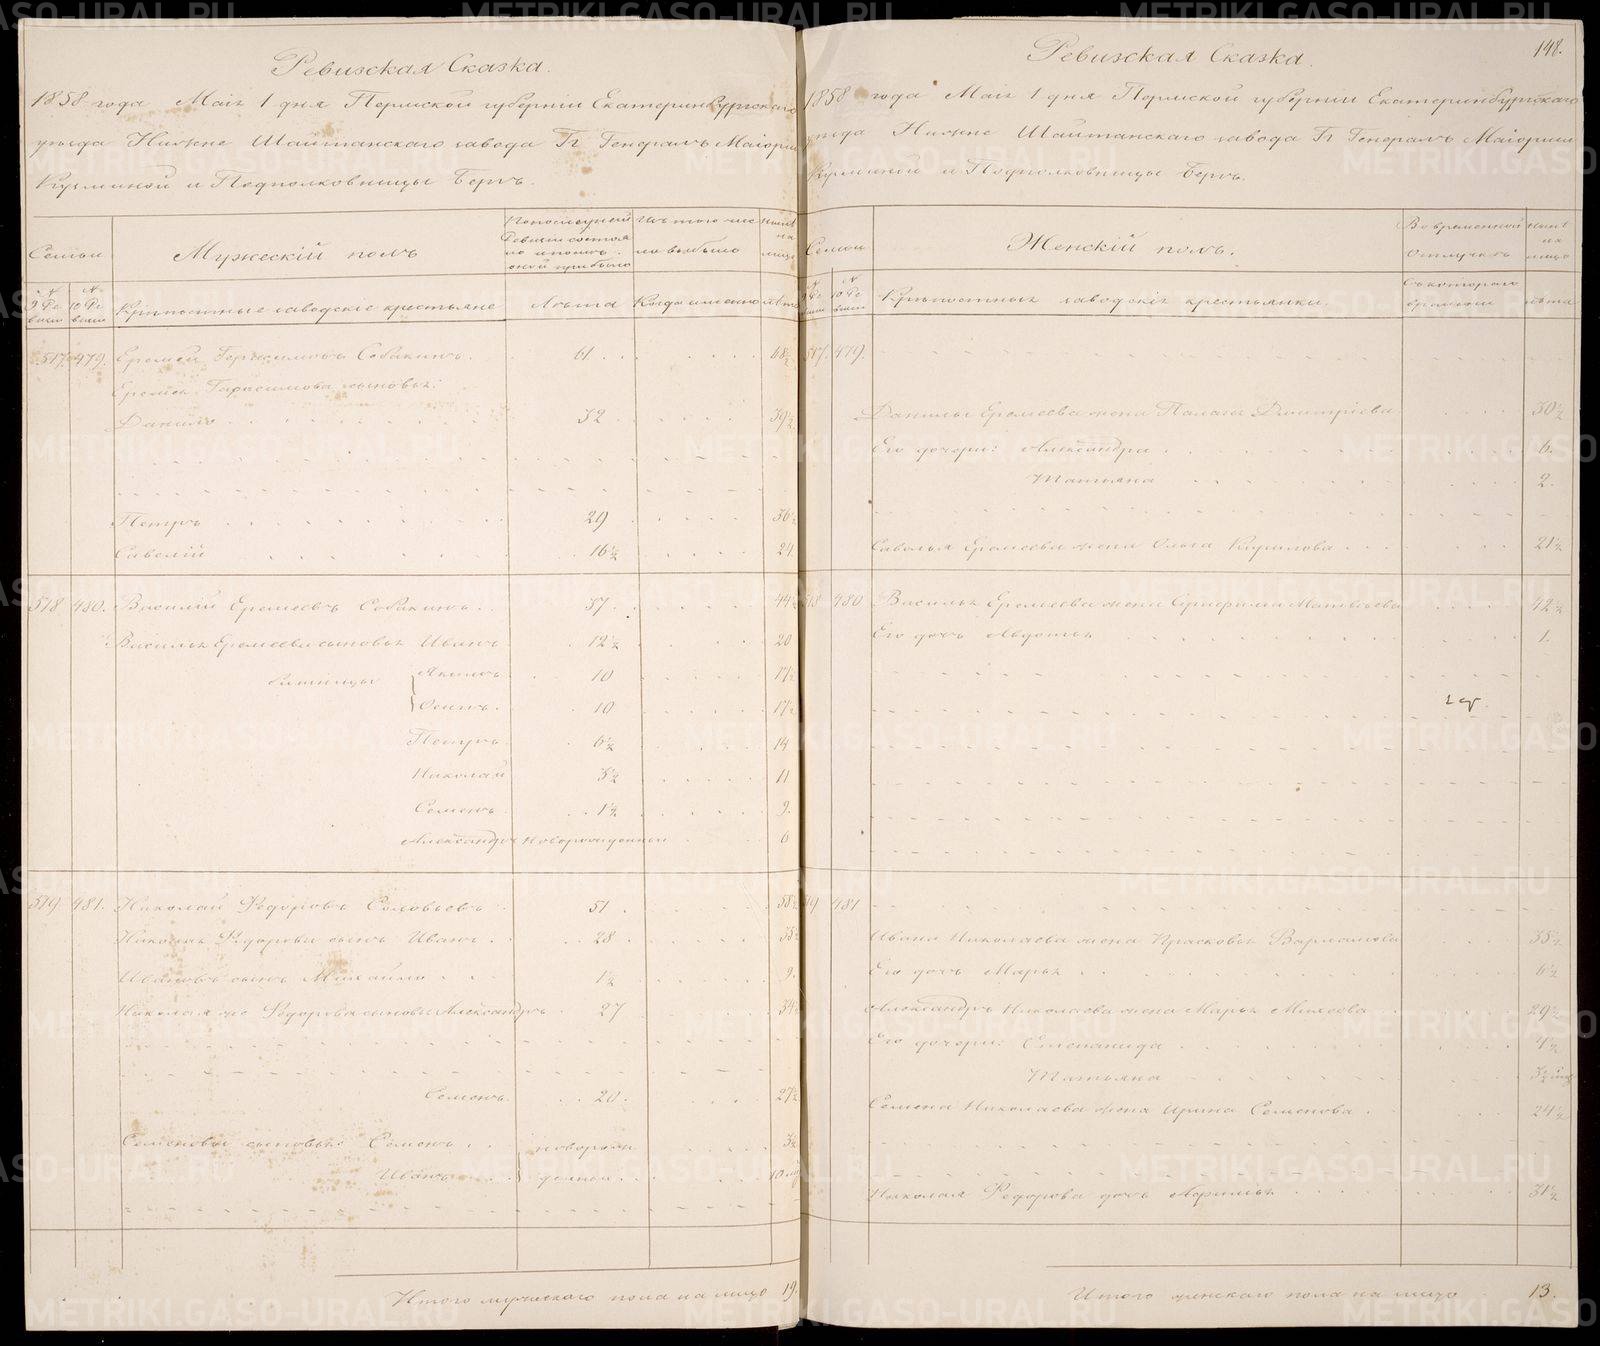 Ревизская Сказка.
1858 года Маія 1 дня Пермской губерніи Екатеринбургскаго
уѣзда Нижне Шайтанскаго завода Гг Генералъ Маіорши
Кузьминой и Подполковницы Бергъ.
Семьи
Мужескій полъ
По последней Ревизіи состояло и после оной прибыло
Изъ того числа выбыло
Ныне на лицо
№ 9 Ревизіи
№ 10 Ревизіи
Крѣпостные заводскіе крестьяне
Лѣта
Когда именно
лѣта
517. 479. Еремей Герасимовъ Собакинъ 61 68½
Еремея Герасимова сыновья:
Данило 32 39½
Петръ 29 36½
Савелій 16½ 24
518 480. Василій Еремеевъ Собакинъ 37 44½
Василья Еремеева сыновья Иванъ 12½ 20
близнецы Акимъ 10 17½
Осипъ 10 17½
Петръ 6½ 14
Николай 3½ 11
Семенъ 1½ 9
Александръ новорожденный 6
519 481. Николай Федоровъ Соловьевъ 51 58½
Николая Федорова сынъ Иванъ 28 35½
Ивановъ сынъ Михайло 1½ 9
Николая же Федорова сыновья Александръ 27 34½
Семенъ 20 27½
Семеновы сыновья: Семенъ новорож 3½
Иванъ денные 10 м
Итого мужескаго пола на лицо 19.
148.
Ревизская Сказка.
1858 года Маія 1 дня Пермской губерніи Екатеринбургскаго
уѣзда Нижне Шайтанскаго завода Гг Генералъ Маіорши
Кузьминой и Подполковницы Бергъ.
Семьи
Женскій полъ.
Во временной отлучкѣ
Ныне на лицо
№ 9 Ревизіи
№ 10 Ревизіи
Крѣпостныя заводскія крестьянки.
Съ котораго времени
лѣта
517. 479.
Данилы Еремеева жена Палагея Дмитріева 30½
Его дочери: Александра 6
Татьяна 2.
Савелья Еремеева жена Ольга Кирилова 21½
518 480 Василья Еремеева жена Матвѣева 42½
Его дочь Авдотья 1.
519 481
Ивана Николаева жена Прасковья Варламова 35½
Его дочь Марья 6½
Александра Николаева жена Марья 29½
Его дочери: Степанида 4½
Татьяна 3½
Семена Николаева жена Ирина Семенова 24½
Николая Федорова дочь 31½
Итого женскаго пола на лицо 13.
METRIKI.GASO-URAL.RU